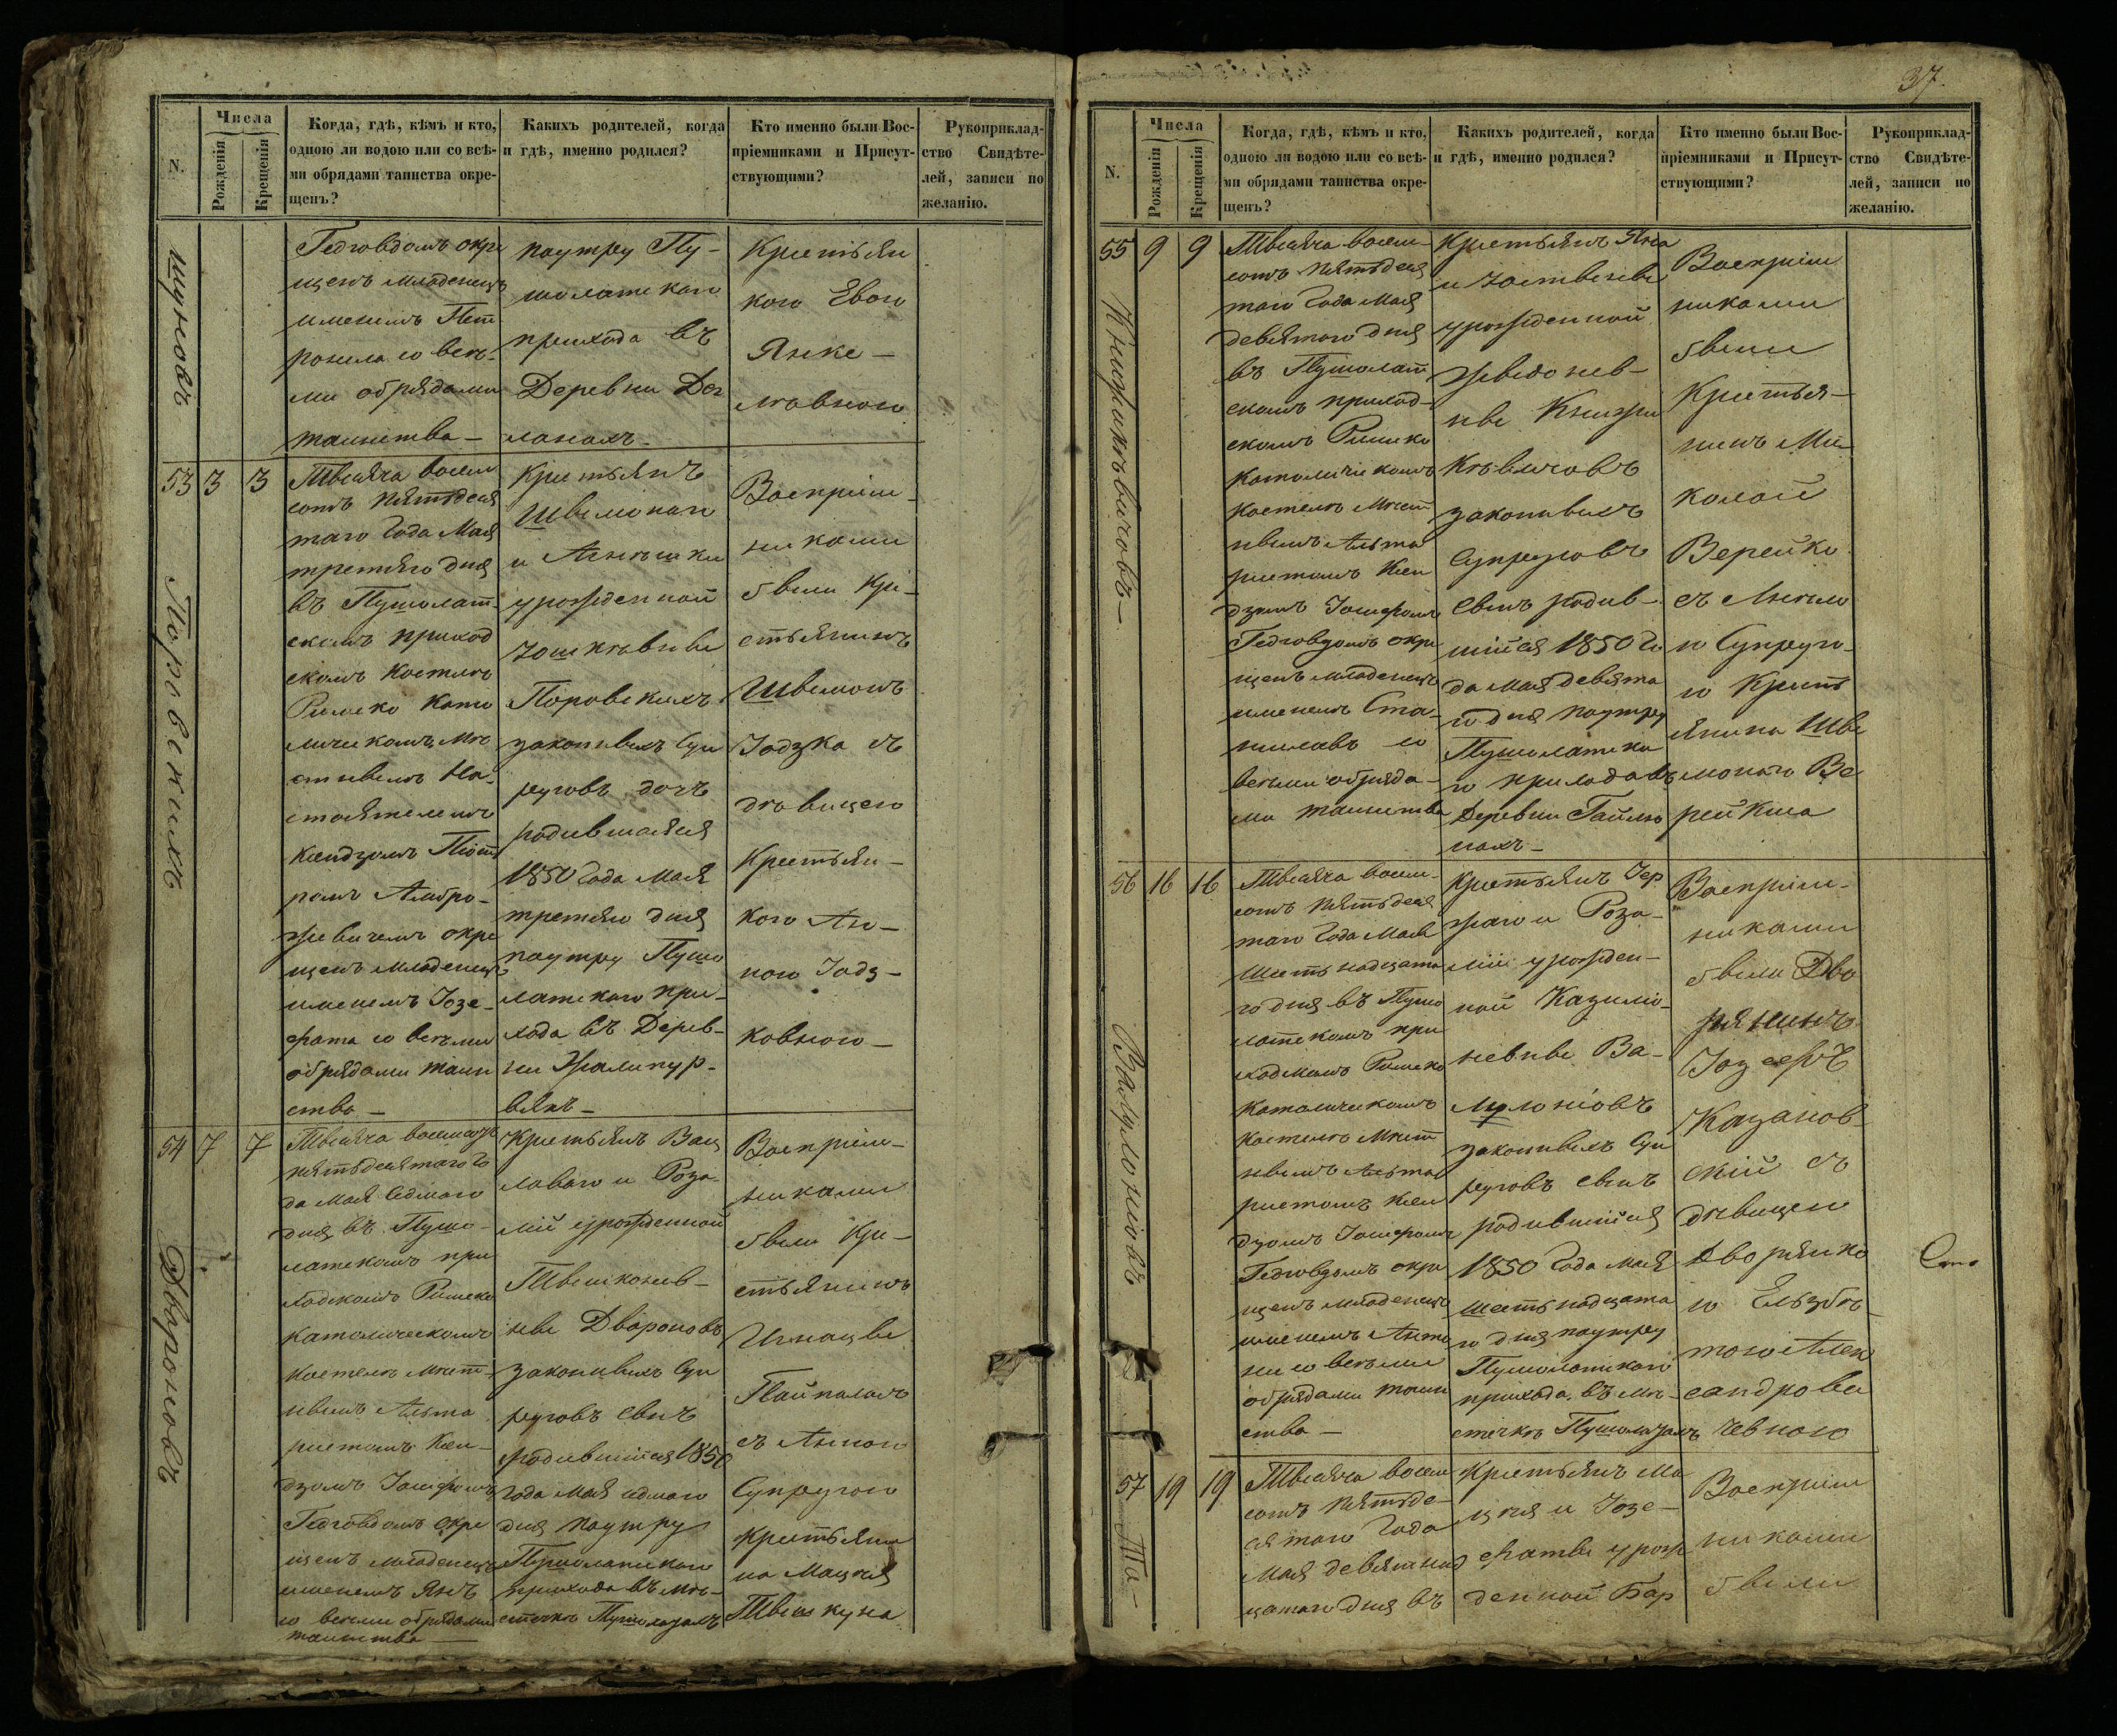 N.
Числа
Рожденія
Крещенія
Когда, гдѣ, кѣмъ и кто,
одною ли водою или со всѣ-
ми обрядами таинства окре-
щенъ?
Какихъ родителей, когда
и гдѣ, именно родился?
Кто именно были Вос-
пріемниками и Присут-
ствующими?
Рукоприклад-
ство Свидѣте-
лей, записи по
желанію.
шуновъ
Гедговдомъ окре
щенъ младенецъ
именемъ Пет
ронела со всѣ-
ми обрядами
таинства —
поутру Пу-
шолатскаго
прихода въ
Деревни
Крестьян
кою Евою
Янке —
левною
53 3 3
Поровскихъ
Тысяча восем
сотъ пятьдеся
таго Года Мая
третьяго дня
въ Пушолат-
скомъ приход
скомъ костелѣ
Римско Като
лическомъ Мѣ
стнымъ На-
стоятелемъ
Ксендзомъ Піот
ромъ Амбро-
жевичемъ окре
щенъ младенецъ
именемъ Іозе-
фата со всѣми
обрядами таин
ства —
Крестьянъ
Шымона
и Агнѣшки
урожденной
Іошкѣвны
Поровскихъ
законныхъ Суп
руговъ дочь
родившаяся
1850 Года Мая
третьяго дня
поутру Пушо
латскаго при-
хода въ Дерев-
ни
Воспріем-
никами
были Кре-
стьянинъ
Шымонъ
Іодзка съ
дѣвицею
Крестьян-
кою Ан-
ною Іодз-
ковною —
54 7 7
Двароновъ
Тысяча восемсотъ
пятьдесятаго Го
да Мая седмаго
дня въ Пушо-
латскомъ при
ходскомъ Римско
Католическомъ
костелѣ Мѣст-
нымъ Альта
ристомъ Ксен-
дзомъ Іосифомъ
Гедговдомъ окре
щенъ младенецъ
именемъ Янъ
со всѣми обрядами
таинства —
Крестьянъ Вац
лаваго и Роза-
ліи урожденной
Твешконев-
ны Двароновъ
законныхъ Суп
руговъ сынъ
родившійся 1850
Года Мая седмаго
дня поутру
Пушолатскаго
прихода въ мѣ-
стечкѣ Пушолатахъ
Воспріем-
никами
были Кре-
стьянинъ
Игнацы
Пайпаламъ
съ Анною
Супругою
Крестьяни
на Мацѣя
Твешкуна
37.
N.
Числа
Рожденія
Крещенія
Когда, гдѣ, кѣмъ и кто,
одною ли водою или со всѣ-
ми обрядами таинства окре-
щенъ?
Какихъ родителей, когда
и гдѣ, именно родился?
Кто именно были Вос-
пріемниками и Присут-
ствующими?
Рукоприклад-
ство Свидѣте-
лей, записи по
желанію.
55 9 9
Книжикѣвичовъ —
Тысяча восем-
сотъ пятьдеся
таго Года Мая
девятаго дня
въ Пушолат
скомъ приход-
скомъ Римско
Католическомъ
костелѣ Мѣст
нымъ Альта
ристомъ Ксен
дзомъ Іосифомъ
Гедговдомъ окре
щенъ младенецъ
именемъ Ста-
ниславъ со
всѣми обряда-
ми таинства
Крестьянъ Яна
и
урожденной
нев-
ны Книжи
кѣвичовъ
законныхъ
Супруговъ
сынъ родив-
шійся 1850 Го
да Мая девята
го дня поутру
Пушолатска
го прихода въ
Деревни Гайлю
нахъ —
Воспріем
никами
были
Крестья-
нинъ Ми
колай
Верейко
съ
ю Супруго-
ю Крест
янина Шы
монаго Ве
рейкиса
56 16 16
Вамулоніовъ
Тысяча восем-
сотъ пятьдеся
таго Года Мая
Шестьнадцата
го дня въ Пушо
латскомъ при
ходскомъ Римско
Католическомъ
костелѣ Мѣст
нымъ Альта
ристомъ Ксен
дзомъ Іосифомъ
Гедговдомъ окре
щенъ младенецъ
именемъ Анто
ни со всѣми
обрядами таин
ства —
Крестьянъ Іер
жаго и Роза-
ліи урожден-
ной Казиміо-
невны Ва-
мулоніовъ
законныхъ Суп
руговъ сынъ
родившійся
1850 Года Мая
шестьнадцата
го дня поутру
Пушолатскаго
прихода въ мѣ-
стечкѣ Пушолатахъ
Воспріем-
никами
были Дво
рянинъ
Іозефъ
Казанов-
скій съ
дѣвицею
Дворянко
ю Ельзбѣ-
тою Алек
сандрови
чевною
57 19 19
Та-
Тысяча восем
сотъ пятьде-
сятаго Года
Мая девятнад
цатаго дня въ
Крестьянъ Ма
цѣя и Іозе-
фаты урож
денной Бар
Воспріем
никами
были